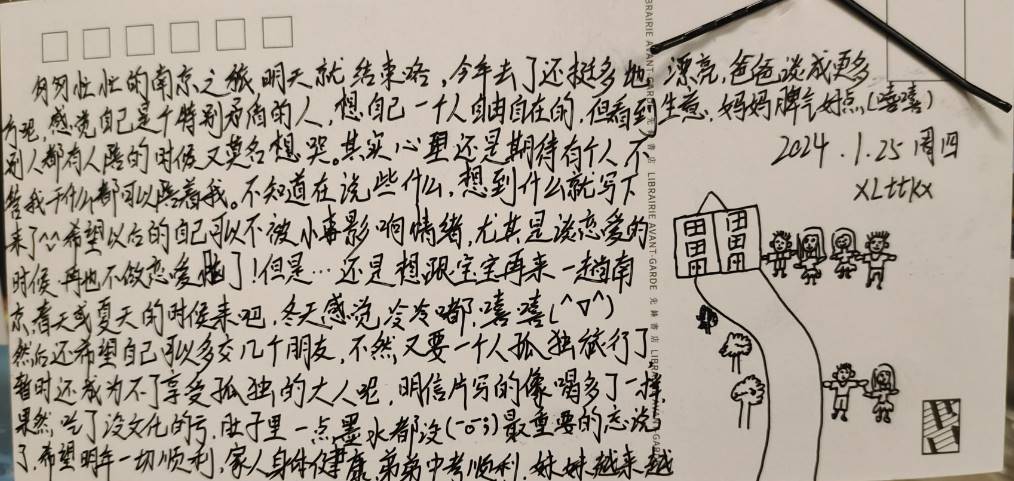 匆匆忙忙的南京之旅明天就结束咯,今年去了还挺多地
方呢,感觉自己是个特别矛盾的人,想自己一个人自由自在的,但看到
别人都有人陪的时候又莫名想哭。其实心里还是期待有个人不
管我干什么都可以陪着我。不知道在说些什么,想到什么就写下
来了^^希望以后的自己可以不被小事影响情绪,尤其是谈恋爱的
时候,再也不做恋爱脑了!但是…还是想跟宝宝再来一趟南
京,春天或夏天的时候来吧,冬天感觉冷冷嘟,嘻嘻(^▽^)
然后还希望自己可以多交几个朋友,不然又要一个人孤独旅行了,
暂时还成为不了享受孤独的大人吧,明信片写的像喝多了一样,
果然,吃了没文化的亏,肚子里一点墨水都没(-σ-;)最重要的忘说
了,希望明年一切顺利,家人身体健康,弟弟中考顺利,妹妹越来越
漂亮,爸爸谈成更多
生意,妈妈脾气好点(嘻嘻)
2024.1.25 周四
xLttkx
LIBRAIRIE AVANT-GARDE 先锋书店 LIBRAIRIE AVANT-GARDE 先锋书店